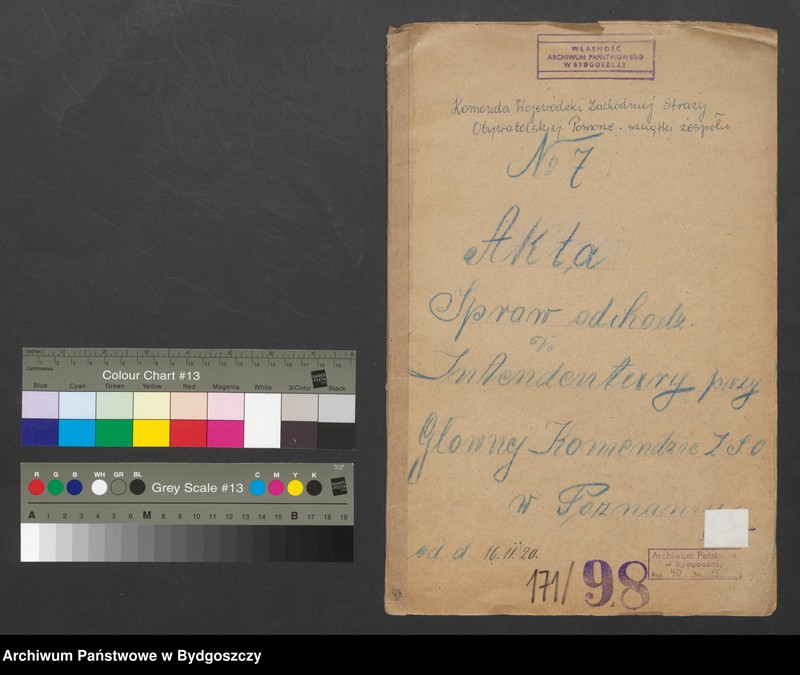 WŁASNOŚĆ
ARCHIWUM PAŃSTWOWEGO
W BYDGOSZCZY
Komenda Wojewódzki Zachodniej Straży
Obywatelskiej Pomorze - szczątki zespołu
No 7
Akta
Spraw odchodz.
Do
Intendentury przy
Głównej Komendzie Z S O
w Poznaniu
od d. 16.11.20.
171/98
Archiwum Państwowe
w Bydgoszczy
93
Inches
Centimetres
Colour Chart #13
Blue Cyan Green Yellow Red Magenta White 3/Color Black
R G B WH GR BL Grey Scale #13 C M Y K
A 1 2 3 4 5 6 M 8 9 10 11 12 13 14 15 B 17 18 19
Archiwum Państwowe w Bydgoszczy